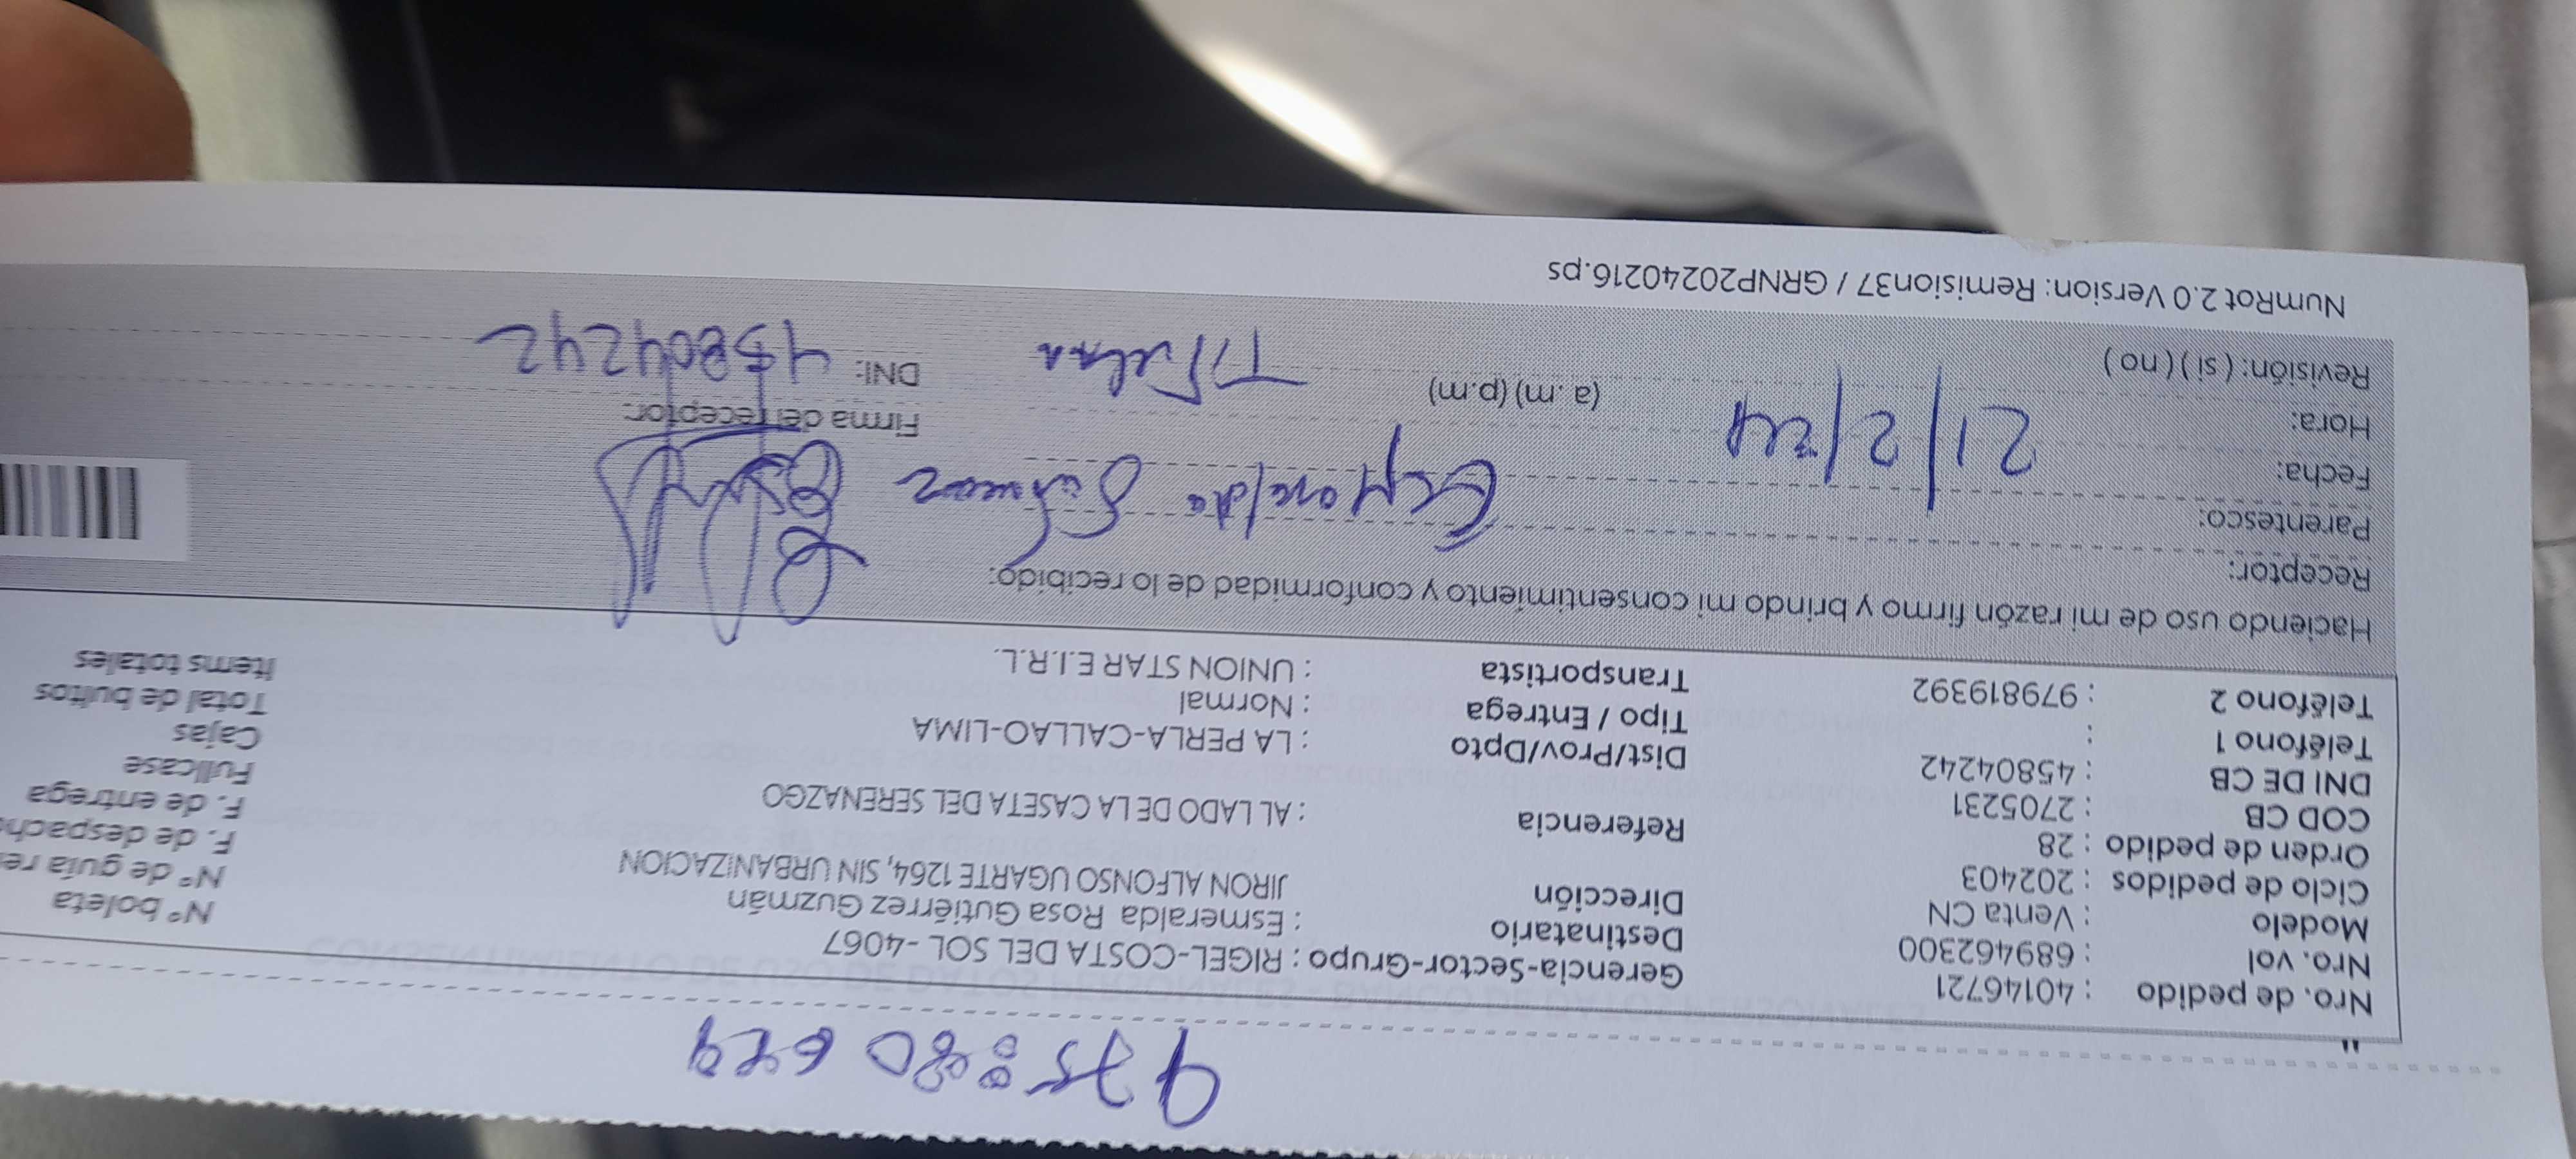 975 880 629
Nro. de pedido : 40146721
Nro. vol : 689462300
Modelo : Venta CN
Ciclo de pedidos : 202403
Orden de pedido : 28
COD CB : 2705231
DNI DE CB : 45804242
Teléfono 1 :
Teléfono 2 : 979819392
Gerencia-Sector-Grupo : RIGEL-COSTA DEL SOL -4067
Destinatario : Esmeralda Rosa Gutiérrez Guzmán
Dirección JIRON ALFONSO UGARTE 1264, SIN URBANIZACION
Referencia : AL LADO DE LA CASETA DEL SERENAZGO
Dist/Prov/Dpto : LA PERLA-CALLAO-LIMA
Tipo / Entrega : Normal
Transportista : UNION STAR E.I.R.L.
N° boleta
N° de guía
F. de despach
F. de entrega
Fullcase
Cajas
Total de bultos
Items totales
Haciendo uso de mi razón firmo y brindo mi consentimiento y conformidad de lo recibido:
Receptor:
Parentesco:
Fecha: 21/2/24
Hora: (a.m) (p.m)
Revisión: ( si ) ( no )
Firma del receptor:
DNI: 45804242
NumRot 2.0 Version: Remision37 / GRNP20240216.ps